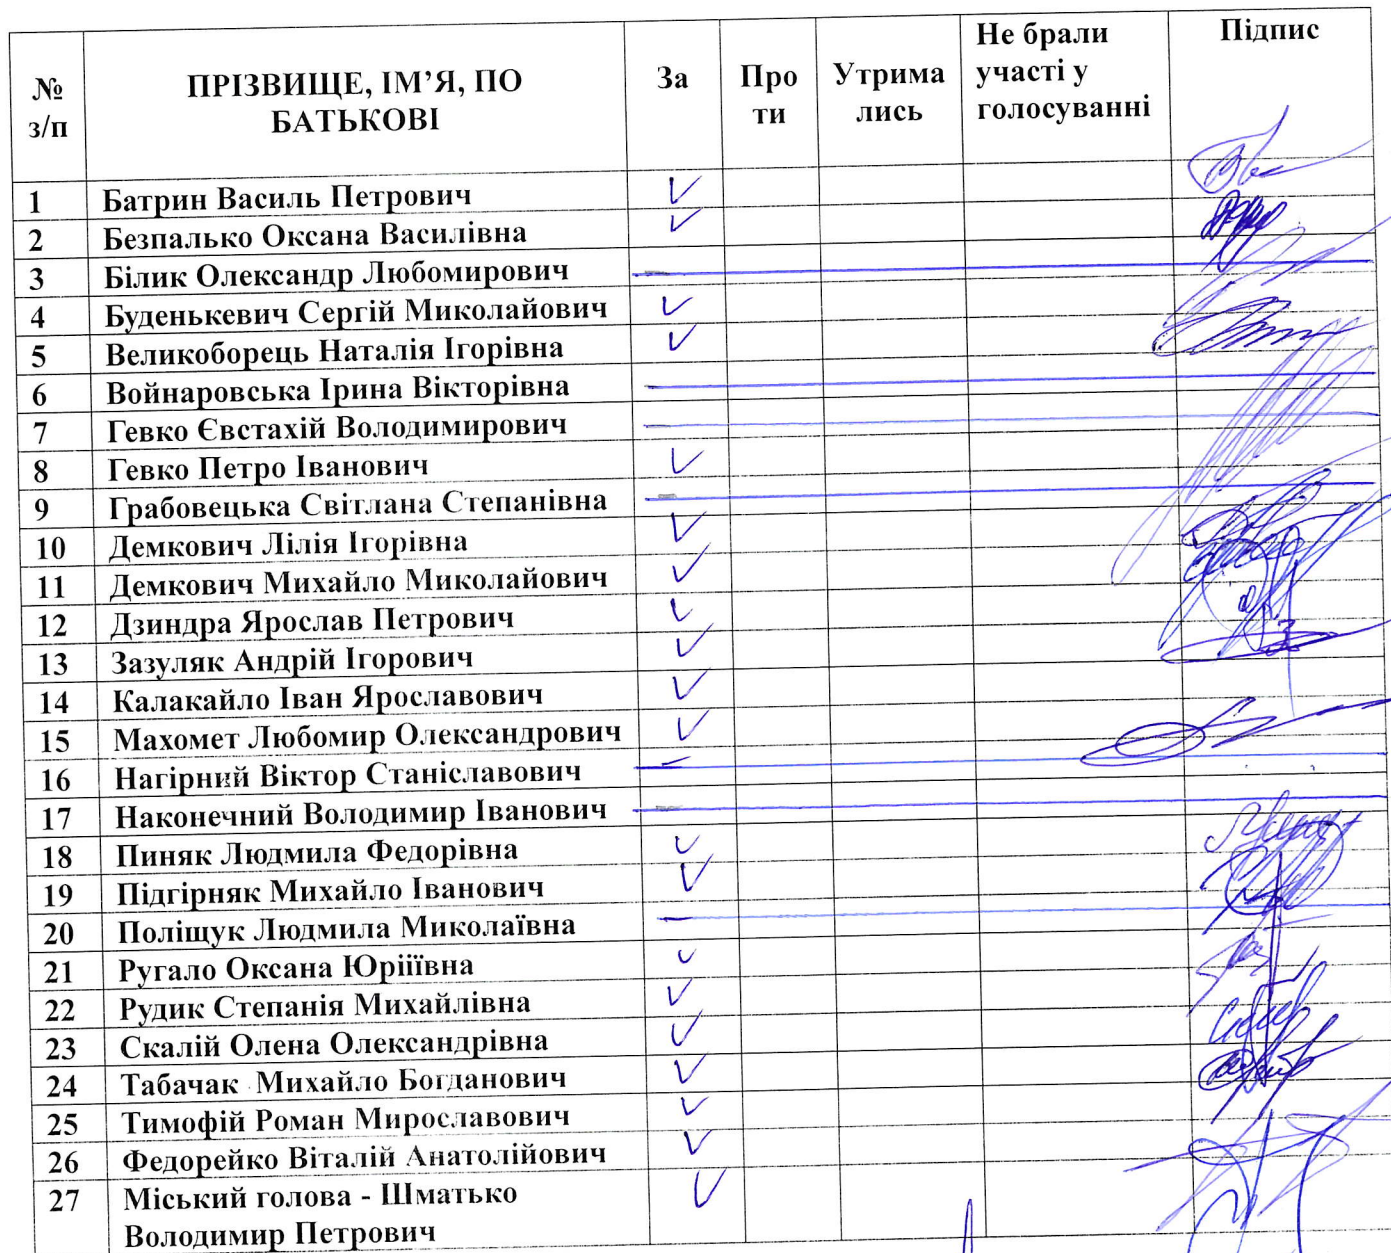 № з/п ПРІЗВИЩЕ, ІМ’Я, ПО БАТЬКОВІ За Про ти Утрима лись Не брали участі у голосуванні Підпис
1 Батрин Василь Петрович V
2 Безпалько Оксана Василівна V
3 Білик Олександр Любомирович
4 Буденькевич Сергій Миколайович V
5 Великоборець Наталія Ігорівна V
6 Войнаровська Ірина Вікторівна
7 Гевко Євстахій Володимирович
8 Гевко Петро Іванович V
9 Грабовецька Світлана Степанівна
10 Демкович Лілія Ігорівна V
11 Демкович Михайло Миколайович V
12 Дзиндра Ярослав Петрович V
13 Зазуляк Андрій Ігорович V
14 Калакайло Іван Ярославович V
15 Махомет Любомир Олександрович V
16 Нагірний Віктор Станіславович
17 Наконечний Володимир Іванович
18 Пиняк Людмила Федорівна V
19 Підгірняк Михайло Іванович V
20 Поліщук Людмила Миколаївна
21 Ругало Оксана Юріїївна V
22 Рудик Степанія Михайлівна V
23 Скалій Олена Олександрівна V
24 Табачак Михайло Богданович V
25 Тимофій Роман Мирославович V
26 Федорейко Віталій Анатолійович V
27 Міський голова - Шматько V
Володимир Петрович